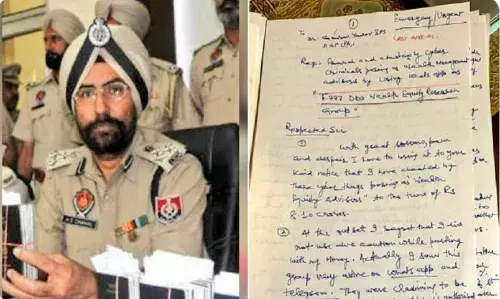 A S CHAHAL
①
Emergency/Urgent
To
Sh. Gaurav Yadav IPS
DGP (Pb)
LAST APPEAL
Reg: Fraud and cheating by Cyber
Criminals posing as Wealth Management
advisors by Using Whatsapp as
"F-777 DBS Wealth Equity Research
Group"
Respected Sir
① With great
and despair I have to bring it to your
kind notice that I have cheated by
these cyber thugs posing as Wealth
Equity Advisors to the tune of Rs
8.10 crores.
② At the outset I regret that I did
not use due caution while parting
with my Money. Actually I saw this
group very active on Whatsapp and
telegram. They were claiming to be